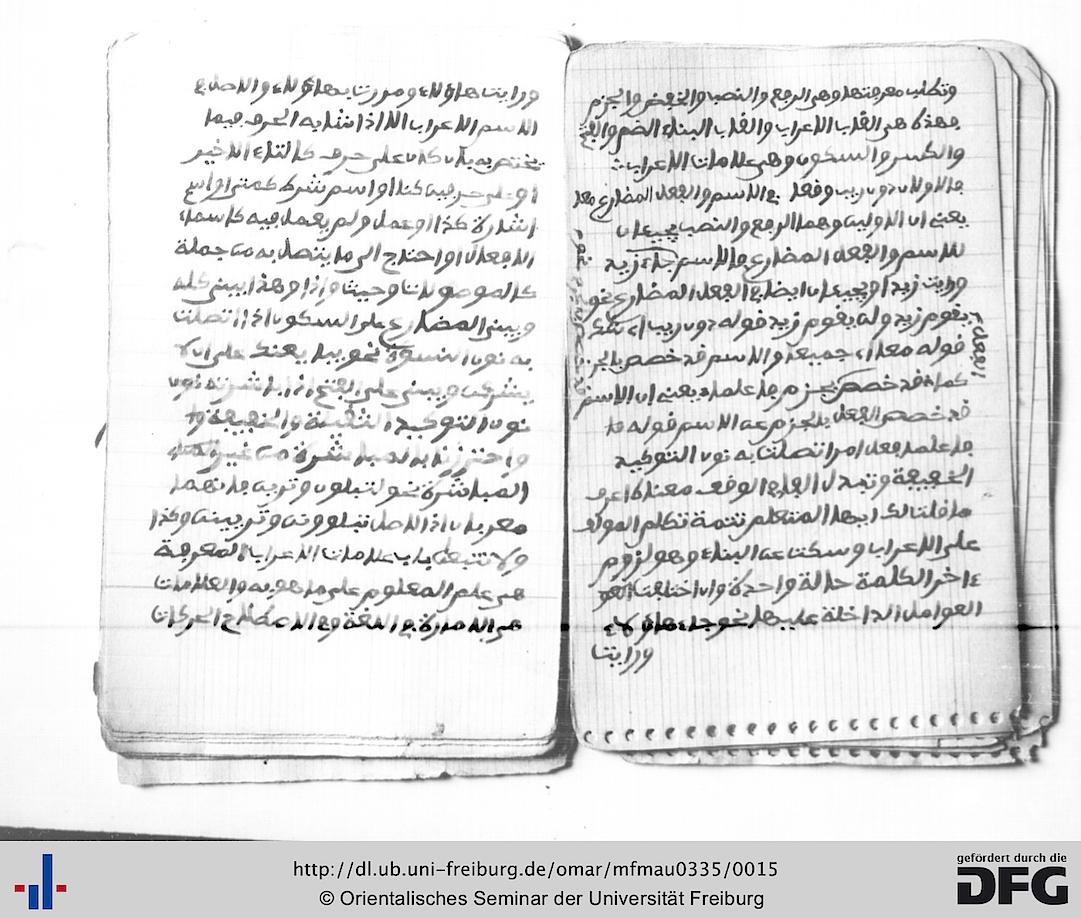 وتطلب معرفتها وهي الرفع والنصب والخفض والجزم
فهذه هي القاب الاعراب والقاب البناء الضم والفتح
والكسر والسكون وهي علامات الاعراب
فالاولان دون ريب وقعا في الاسم والفعل المضارع معا
يعني ان الاولين وهما الرفع والنصب يجيـان
للاسم والفعل المضارع فالاسم جاء زيد
ورايت زيدا ويجيـان ايضا في الفعل المضارع نحو
يقوم زيد ولن يقوم زيد قوله دون ريب اي شك
قوله معا اي جميعا والاسم قد خصص بالجر
كما قد خصص بجزم فعل علما يعني ان الاسم
قد خصص الفعل بالجزم عن الاسم قوله
فعل علما فعل امر اتصلت به نون التوكيد
الخفيفة وتبدل الفا في الوقف معناه اعرف
ما قلت لك ايها المتعلم تتمة تكلم المؤلف
على الاعراب وسكت عن البناء وهو لزوم
ءاخر الكلمة حالة واحدة وان اختلفت
العوامل الداخلة عليها نحو جاء هاؤلاء
ورايت
الفعل
ورايت هاؤلاء ومررت بهاؤلاء والاصل في
الاسم الاعراب الا اذا شابه الحرف فيما
يختص به بان كان على حرف كالتاء الاخير
او على حرفين كنا او اسم شرط كمتى او اسم
اشارة كذا او عمل ولم يعمل فيه كاسماء
الافعال او احتاج الى ما يتصل به من جملة
كالموصولات وحيث واذا وهذا يبنى كله
ويبنى المضارع على السكون اذا اتصلت
به نون النسوة نحو يعبدنك على ان لا
يشركن ويبنى على الفتح اذا باشرته نون
نون التوكيد الثقيلة والخفيفة
واحترزنا بالمباشرة من غير
المباشرة نحو لتبلون وترين فانهما
معربان اذ الاصل تبلوونن وترييـنن وكذا
ولا تتبعان باب علامات الاعراب المعرفة
هي علم المعلوم على ما هو به والعلامات
هي الامارة في اللغة وفي الاصطلاح الحركات
http://dl.ub.uni-freiburg.de/omar/mfmau0335/0015
© Orientalisches Seminar der Universität Freiburg
gefördert durch die
DFG